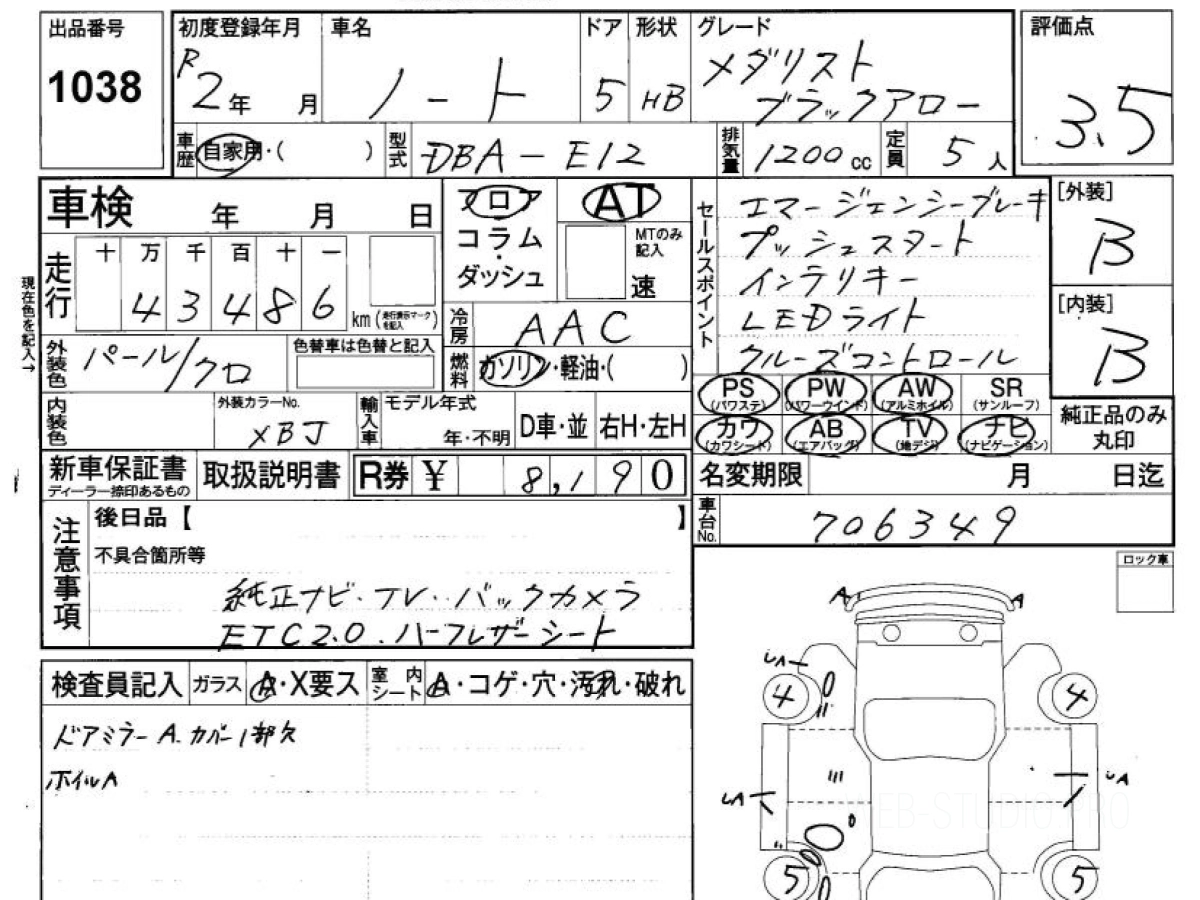 出品番号
1038
初度登録年月
R2年 月
車名
ノート
ドア
5
形状
HB
グレード
メダリスト
ブラックアロー
評価点
3.5
車歴
自家用・( )
型式
DBA-E12
排気量
1200cc
定員
5人
車検 年 月 日
フロア
コラム
・
ダッシュ
AT
MTのみ記入
速
セールスポイント
エマージェンシーブレーキ
プッシュスタート
インテリキー
LEDライト
クルーズコントロール
[外装]
B
[内装]
B
現在色を記入→
走行
十 万 千 百 十 一
4 3 4 8 6
km(走行表示マークを記入)
冷房
AAC
外装色
パール/クロ
色替車は色替と記入
燃料
ガソリン・軽油・( )
PS
(パワステ)
PW
(パワーウインド)
AW
(アルミホイル)
SR
(サンルーフ)
カワ
(カワシート)
AB
(エアバッグ)
TV
(地デジ)
ナビ
(ナビゲーション)
純正品のみ
丸印
内装色
外装カラーNo.
XBJ
輸入車
モデル年式
年・不明
D車・並
右H・左H
新車保証書
ディーラー捺印あるもの
取扱説明書
R券 ¥ 8,190
名変期限 月 日迄
車台No.
706349
注意事項
後日品【 】
不具合箇所等
純正ナビ・TV・バックカメラ
ETC2.0.ハーフレザーシート
ロック車
検査員記入
ガラス
A・X要ス
室内シート
A・コゲ・穴・汚れ・破れ
ドアミラーA.カバー1部欠
ホイルA
A
A
4
4
5
5
WEB-STUDIO.PRO